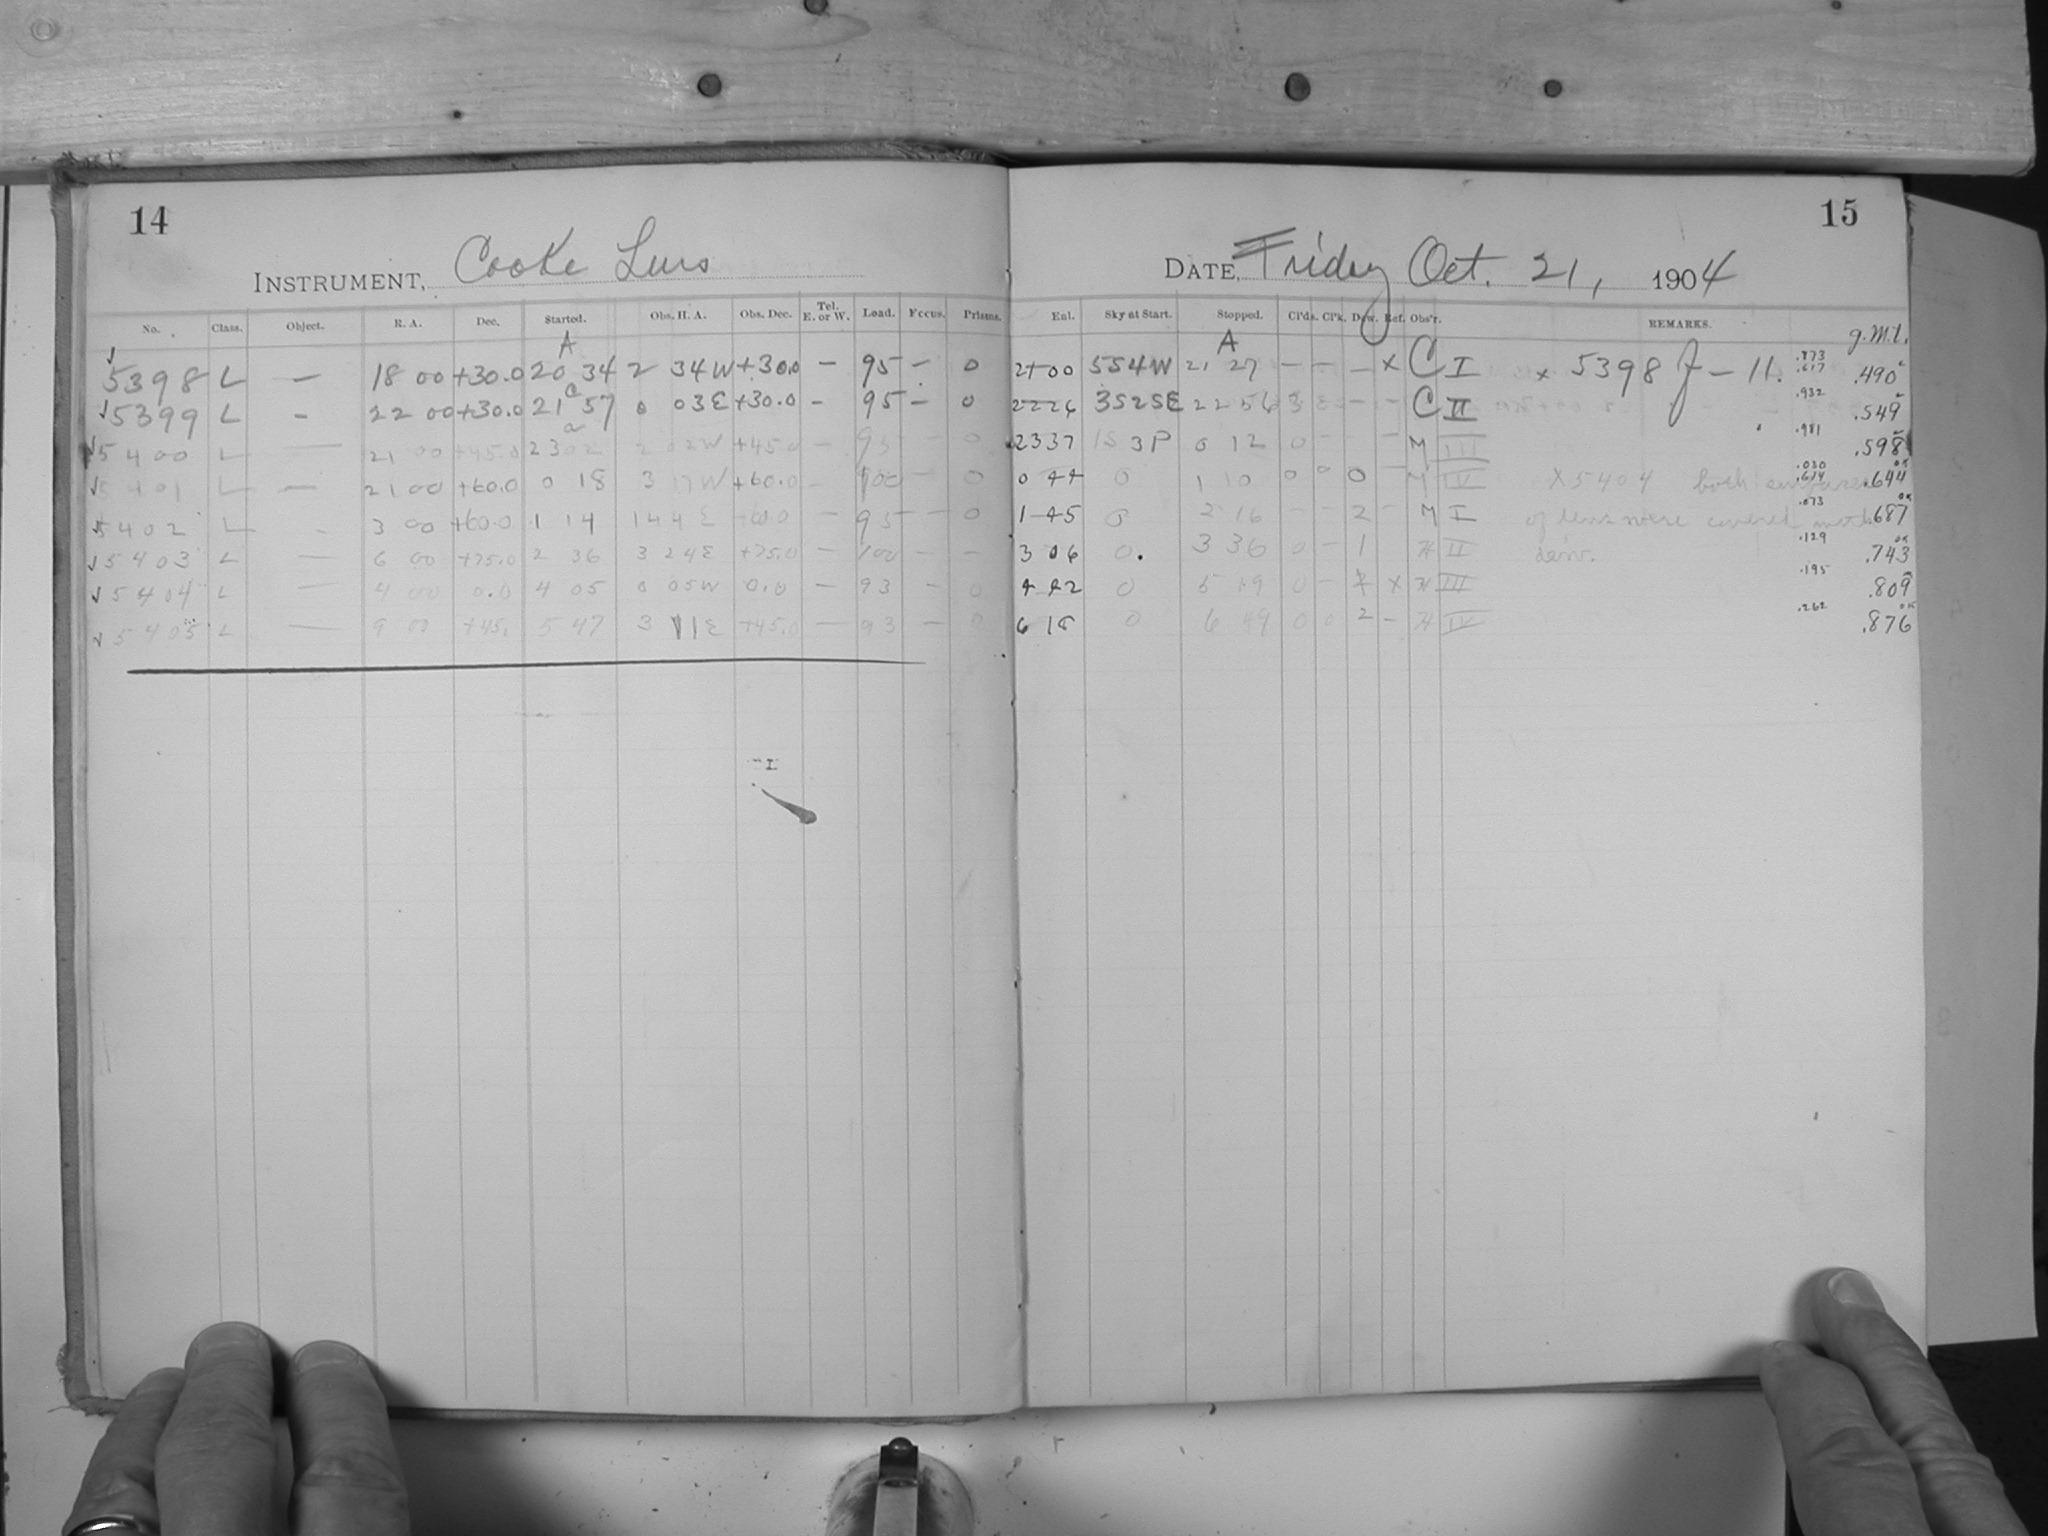 14
INSTRUMENT, Cooke Lens
No. Class. Object. R. A. Dec. Started. Obs. H. A. Obs. Dec. Tel. E. or W. Load. Focus. Prisms.
A
5398 L — 18 00 +30.0 20 34 2 34W +30.0 — 95 — 0
5399 L — 22 00 +30.0 21 57 0 03E +30.0 — 95 — 0
5400 L — 21 00 +45.0 23 02 2 02W +45.0 — 95 — 0
5401 L — 21 00 +60.0 0 18 3 17W +60.0 — 100 — 0
5402 L - 3 00 +60.0 1 14 1 44E +60.0 — 95 — 0
5403 L — 6 00 +75.0 2 36 3 24E +75.0 — 100 — —
5404 L — 4 00 0.0 4 05 0 05W 0.0 — 93 — 0
5405 L — 9 00 +45. 5 47 3 11E +45.0 — 93 — 0
15
DATE, Friday Oct. 21, 1904
Enl. Sky at Start. Stopped. Cl'ds. Cl'k. Dew. Ref. Obs'r. REMARKS.
A g.M.t.
2100 554W 21 27 — — — x C I x 5398 J — 11. .873 .617 .490
2226 3S2SE 22 56 3 — — C II .932 .549
2337 1S 3P 0 12 0 - - - M III .981 .598
0 44 0 1 10 0 0 0 M IV x 5404 both .030 .614 .644
1 45 0 2 16 - - 2 - M I of lens were covered with .073 .687
3 06 0. 3 36 0 - 1 H II dew. .129 .743
4 42 0 5 19 0 - x H III .195 .809
6 18 0 6 49 0 0 2 - H IV .262 .876